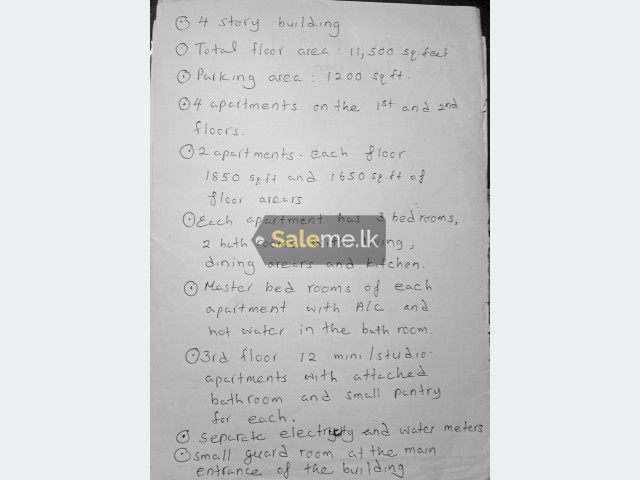 4 story building
Total floor area : 11,500 sq feet
Parking area : 1200 sq ft.
4 apartments on the 1st and 2nd
floors.
2 apartments - each floor
1850 sq.ft and 1650 sq.ft of
floor arears
Each apartment has 3 bedrooms,
2 bath
dining arears and kitchen.
Saleme.lk
Master bed rooms of each
apartment with A/c and
hot water in the bath room.
3rd floor 12 mini/studio
apartments with attached
bathroom and small pantry
for each.
separate electricity and water meters
small guard room at the main
entrance of the building